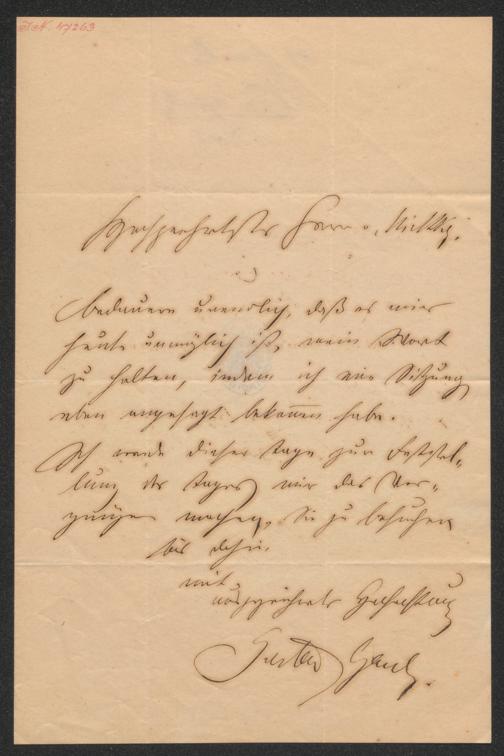 J.N. 47263
Hochgeehrtester Herr v.
bedauere unendlich, daß es mir
heute unmöglich ist, mein Wort
zu halten, indem ich eine Sitzung
eben angesagt bekommen habe.
Ich werde dieser Tage zur Feststel-
lung des Tages mir das Ver-
gnügen machen, Sie zu besuchen
bis dahin
mit
ausgezeichneter Hochachtung
Gustav Gaul.